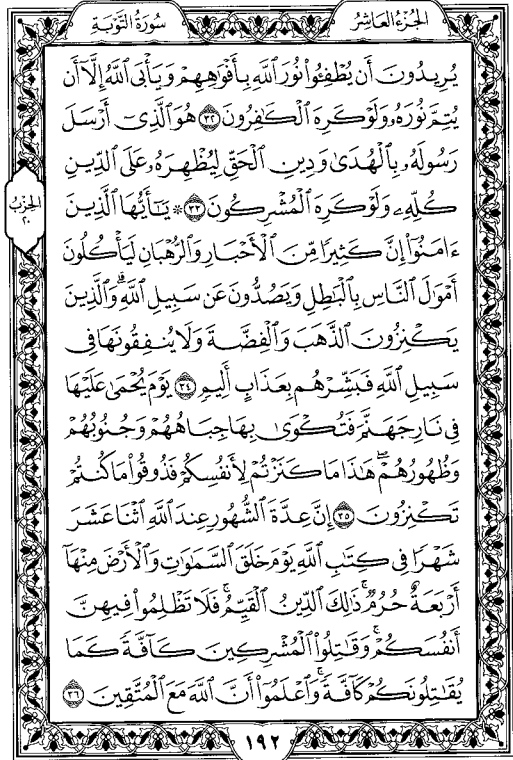 سُورَةُ التَّوْبَةِ الجُزْءُ العَاشِرُ
يُرِيدُونَ أَن يُطْفِـُٔوا۟ نُورَ ٱللَّهِ بِأَفْوَٰهِهِمْ وَيَأْبَى ٱللَّهُ إِلَّآ أَن
يُتِمَّ نُورَهُۥ وَلَوْ كَرِهَ ٱلْكَٰفِرُونَ ٣٢ هُوَ ٱلَّذِىٓ أَرْسَلَ
رَسُولَهُۥ بِٱلْهُدَىٰ وَدِينِ ٱلْحَقِّ لِيُظْهِرَهُۥ عَلَى ٱلدِّينِ
كُلِّهِۦ وَلَوْ كَرِهَ ٱلْمُشْرِكُونَ ٣٣ * يَٰٓأَيُّهَا ٱلَّذِينَ
ءَامَنُوٓا۟ إِنَّ كَثِيرًا مِّنَ ٱلْأَحْبَارِ وَٱلرُّهْبَانِ لَيَأْكُلُونَ
أَمْوَٰلَ ٱلنَّاسِ بِٱلْبَٰطِلِ وَيَصُدُّونَ عَن سَبِيلِ ٱللَّهِ ۗ وَٱلَّذِينَ
يَكْنِزُونَ ٱلذَّهَبَ وَٱلْفِضَّةَ وَلَا يُنفِقُونَهَا فِى
سَبِيلِ ٱللَّهِ فَبَشِّرْهُم بِعَذَابٍ أَلِيمٍ ٣٤ يَوْمَ يُحْمَىٰ عَلَيْهَا
فِى نَارِ جَهَنَّمَ فَتُكْوَىٰ بِهَا جِبَاهُهُمْ وَجُنُوبُهُمْ
وَظُهُورُهُمْ ۖ هَٰذَا مَا كَنَزْتُمْ لِأَنفُسِكُمْ فَذُوقُوا۟ مَا كُنتُمْ
تَكْنِزُونَ ٣٥ إِنَّ عِدَّةَ ٱلشُّهُورِ عِندَ ٱللَّهِ ٱثْنَا عَشَرَ
شَهْرًا فِى كِتَٰبِ ٱللَّهِ يَوْمَ خَلَقَ ٱلسَّمَٰوَٰتِ وَٱلْأَرْضَ مِنْهَآ
أَرْبَعَةٌ حُرُمٌ ۚ ذَٰلِكَ ٱلدِّينُ ٱلْقَيِّمُ ۚ فَلَا تَظْلِمُوا۟ فِيهِنَّ
أَنفُسَكُمْ ۚ وَقَٰتِلُوا۟ ٱلْمُشْرِكِينَ كَآفَّةً كَمَا
يُقَٰتِلُونَكُمْ كَآفَّةً ۚ وَٱعْلَمُوٓا۟ أَنَّ ٱللَّهَ مَعَ ٱلْمُتَّقِينَ ٣٦
الحِزْبُ
٢٠
١٩٢